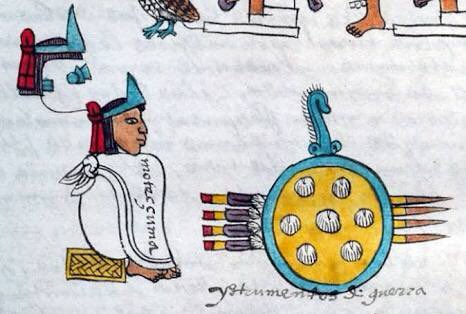 motecçuma
ystrumentos de guerra